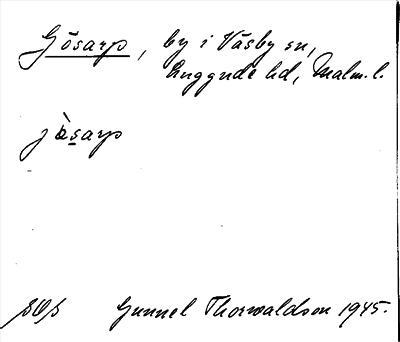 Gösarp, by i Väsby sn,
Luggude hd, Malm. l.
jòsarp
Gunnel Thorwaldson 1945.